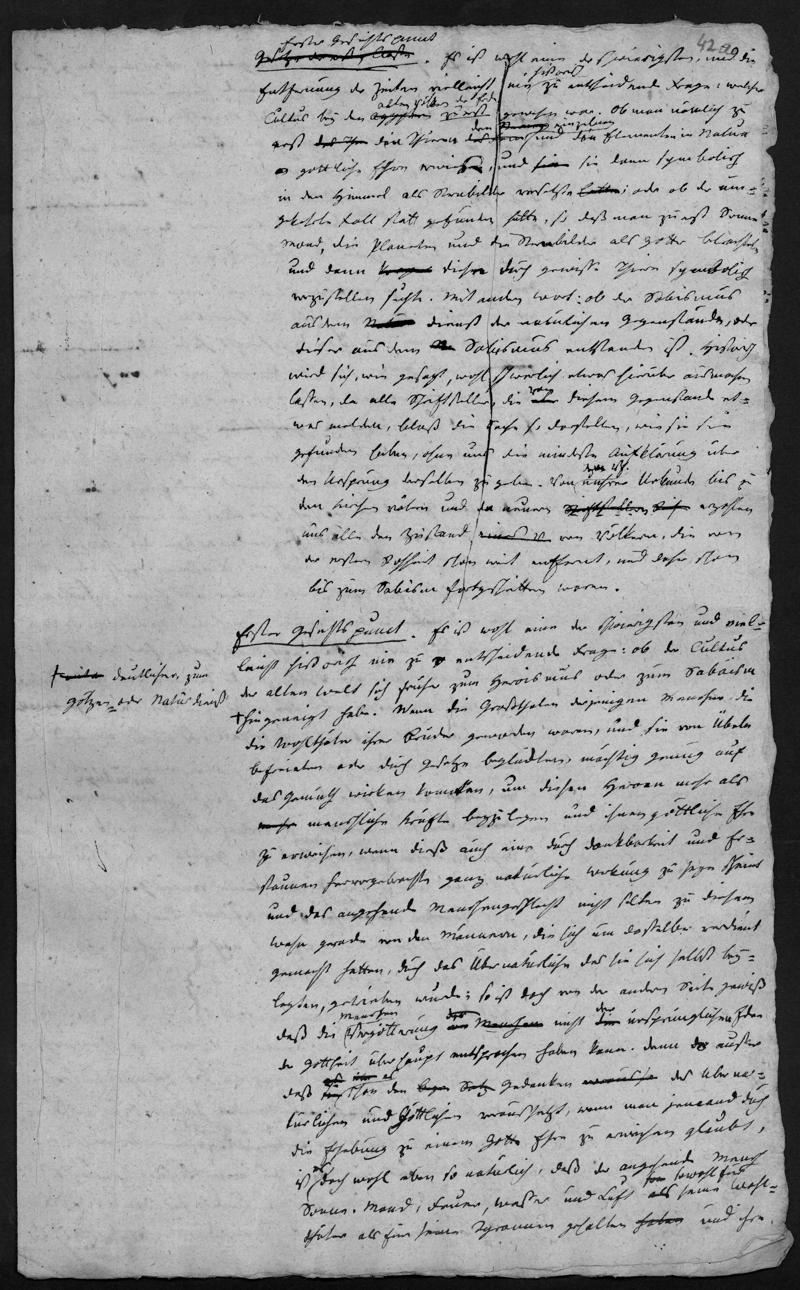 42a
Erster Gesichtspunct
Es ist wohl eine der schwierigsten, und die
Entfernung der Zeiten vielleicht nie historisch zu entscheidende Frage: welcher
Cultus bey den alten Völkern der Erde zuerst gewesen war. Ob man nämlich zu
erst den Thieren und den Elementen in Natura
göttliche Ehre erwies, und sie dann symbolisch
in den Himmel als Sternbilder versetzte: oder ob der um-
gekehrte Fall statt gefunden hätte, so daß man zu erst Sonne
Mond, die Planeten und die Sternbilder als Götter betrachtete
und dann diese durch gewisse Thiere symbolisch
vorzustellen suchte. Mit andern Wort: ob der Sabismus
aus dem dienst der natürlichen Gegenstände, oder
dieser aus dem Sabismus entstanden ist. Historisch
wird sich, wie gesagt, wohl schwerlich etwas hierüber ausmachen
lassen, da alle Schriftsteller, die von diesem Gegenstande et-
was melden, bloß die Sache so darstellen, wie sie sie
gefunden haben, ohne uns die mindeste Aufklärung über
den Ursprung derselben zu geben. Von unsrer Urkunde bis zu
den Kirchen vätern und neuern erzählen
uns alle den Zustand von Völkern, die von
der ersten Rohheit schon weit entfernt, und daher schon
bis zum Sabism fortgeschritten waren.
Erster Gesichtspunct. Es ist wohl eine der schwierigsten und viel-
leicht historisch nie zu entscheidende Frage: ob der Cultus
der alten Welt sich früher zum Heroismus oder zum Sabäism
deutlicher, zum
götzen- oder Naturdienst
hingeneigt habe. Wenn die Großthaten derjenigen Menschen die
die Wohlthäter ihrer Brüder geworden waren, und sie von Übeln
befreieten oder durch Gesetze beglückten, mächtig genug auf
das Gemüth wirken konnten, um diesen Heroen mehr als
menschliche Kräfte beyzulegen und ihnen göttliche Ehre
zu erweisen, wenn dieß auch eine durch Dankbarkeit und Er-
staunen hervorgebrachte ganz natürliche Wirkung zu seyn scheint
und das angehende Menschengeschlecht nicht selten zu diesem
Wahn gerade von den Männern, die sich um dasselbe verdient
gemacht hatten, durch das Übernatürliche das sie sich selbst bey-
legten, getrieben wurde; so ist doch von der andern Seite gewiß
daß die Menschen Vergötterung nicht der ursprünglichen Idee
der Gottheit überhaupt entsprochen haben kann. denn außer
daß es schon den Gedanken des Überna-
türlichen und Göttlichen voraussetzt, wenn man jemand durch
die Erhebung zu einem Gotte Ehre zu erweisen glaubt,
ist es doch wohl eben so natürlich, daß der angehende Mensch
Sonne, Mond, Feuer, Wasser und Luft sowohl für seine Wohl-
thäter als für seine Tyrannen gehalten und ihre